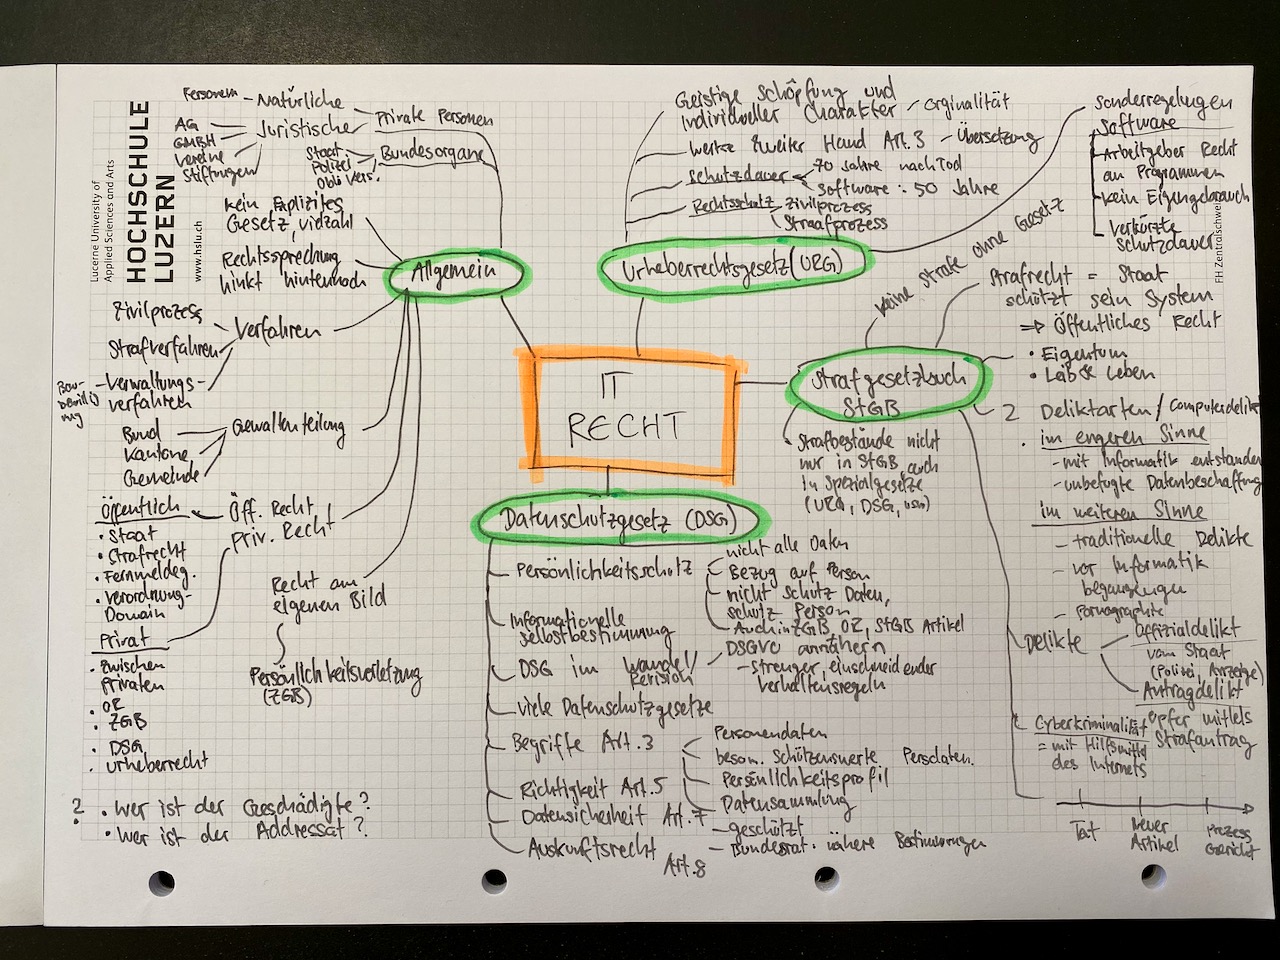 Lucerne University of
Applied Sciences and Arts
HOCHSCHULE
LUZERN
www.hslu.ch
FH Zentralschweiz
IT
RECHT
Allgemein
Personen
Natürliche
Juristische
Private Personen
AG
GMBH
Vereine
Stiftungen
Bundesorgane
Staat
Polizei
Obli Vers.
kein Explizites
Gesetz, vielzahl
Rechtssprechung
hinkt hinternach
Verfahren
Zivilprozess
Strafverfahren
Verwaltungs-
verfahren
Gewaltenteilung
Bund
Kantone
Gemeinde
Öff. Recht
Priv. Recht
Öffentlich
• Staat
• Strafrecht
• Fernmeldeg.
• Verordnung-
Domain
Privat
• Zwischen
Privaten
• OR
• ZGB
• DSG
• Urheberrecht
Recht am
eigenen Bild
Persönlichkeitsverletzung
(ZGB)
? • Wer ist der Geschädigte?
• Wer ist der Addressat?
Urheberrechtsgesetz (URG)
Geistige Schöpfung und
Individueller Charakter
Orginalität
Werke Zweiter Hand Art. 3 - Übersetzung
Schutzdauer
70 Jahre nach Tod
Software: 50 Jahre
Rechtsschutz
Zivilprozess
Straafprozess
Sonderregelugen
Software
Arbeitgeber Recht
an Programmen
kein Eigengebrauch
Verkürzte
Schutzdauer
Strafgesetzbuch
StGB
keine Strafe ohne Gesetz
Strafrecht = Staat
schützt sein System
⇒ Öffentliches Recht
• Eigentum
• Leib & Leben
2 Deliktarten / Computerdelikte
• im engeren Sinne
- mit Informatik entstanden
- unbefugte Datenbeschaffung
im weiteren Sinne
- traditionelle Delikte
- vor Informatik
- Pornographie
Strafbestände nicht
nur in StGB, auch
in Spezialgesetze
(URG, DSG, usw)
Delikte
Offizialdelikt
vom Staat
(Polizei, Anzeige)
Antragdelikt
opfer mittels
Strafantrag
Cyberkriminalität
= mit Hilfsmittel
des Internets
Tat
Neuer
Artikel
Prozess
Gericht
Datenschutzgesetz (DSG)
Persönlichkeitsschutz
nicht alle Daten
Bezug auf Person
nicht schutz Daten,
schutz Person
Auch in ZGB, OR, StGB Artikel
Informationelle
selbstbestimmung
DSG im Wandel/
Revision
DSGVO annähern
- strenger, einschneidender
Verhaltensregeln
viele Datenschutzgesetze
Begriffe Art. 3
Personendaten
beson. Schützenswerte Persdaten.
Persönlichkeitsprofil
Datensammlung
Richtigkeit Art. 5
Datensicherheit Art. 7
- geschützt
- Bundesrat: nähere Bestimmungen
Auskunftsrecht
Art. 8